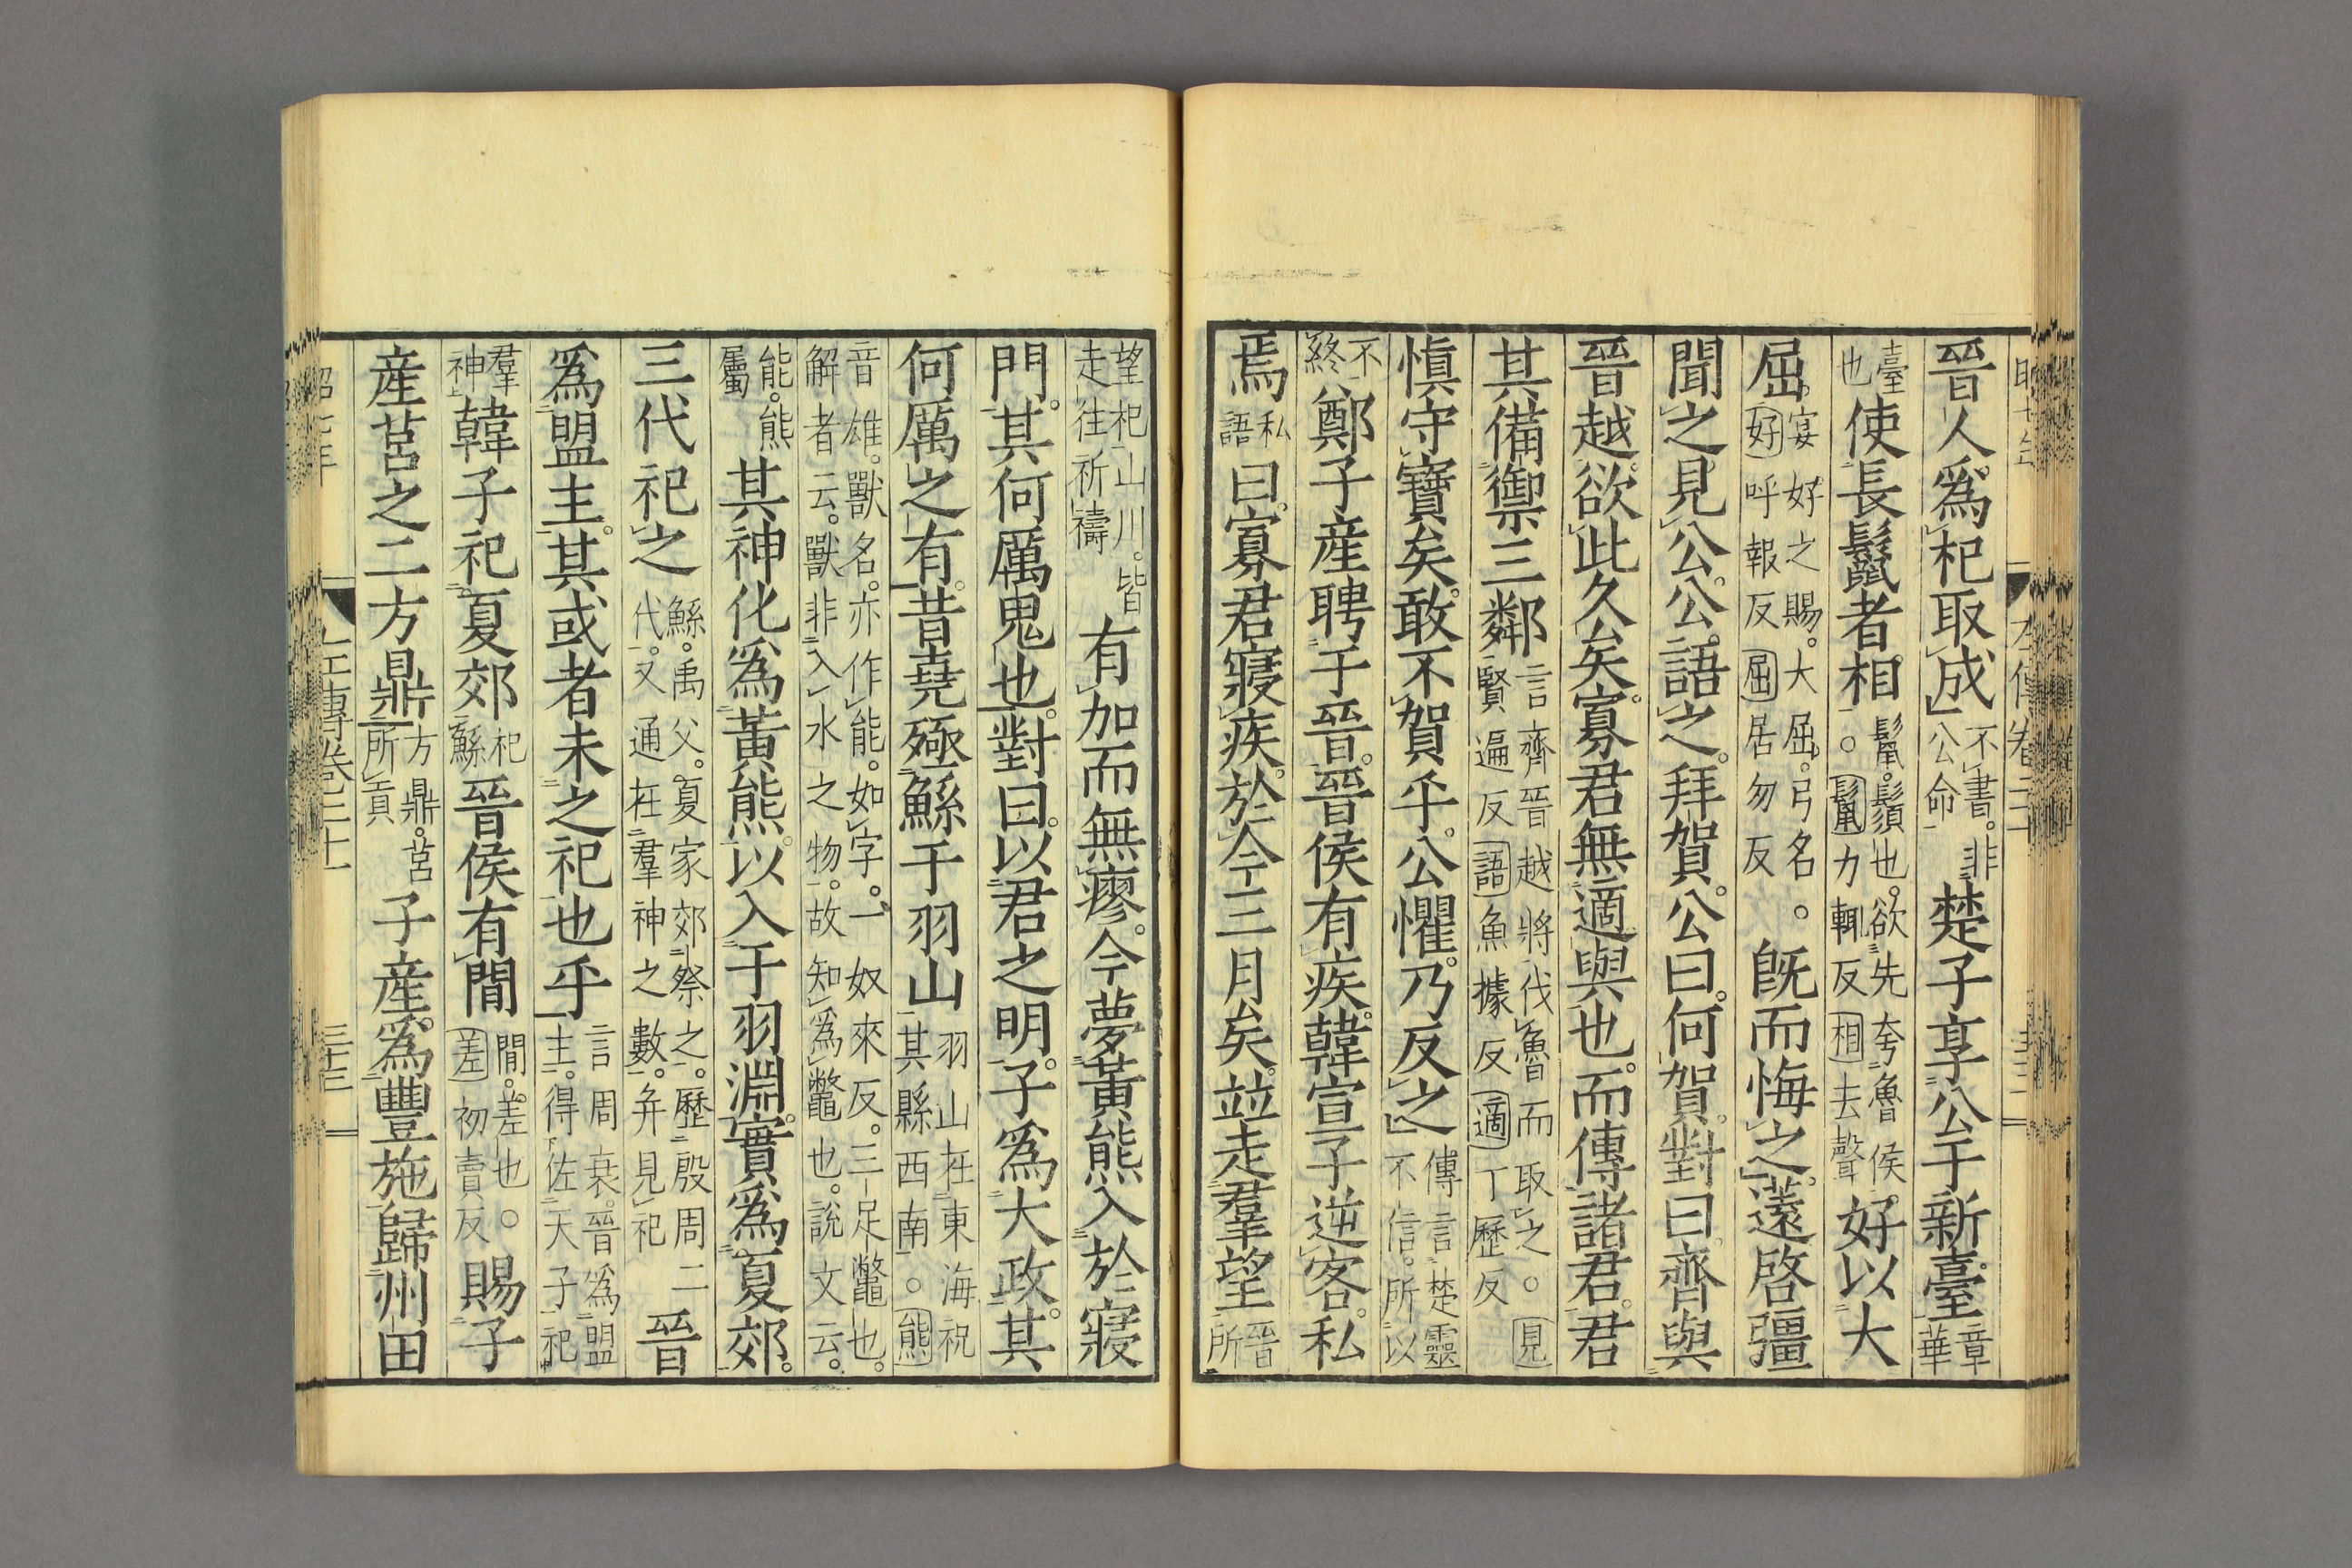 晉人爲杞取成不書非公命楚子享公于新臺章華
臺也使長鬛者相鬛鬚也欲先夸魯侯○鬛力輒反相去聲好以大
屈宴好之賜大屈弓名○好呼報反屈居勿反旣而悔之薳啓彊
聞之見公公語之拜賀公曰何賀對曰齊與
晉越欲此久矣寡君無適與也而傳諸君君
其備禦三鄰言齊晉越將伐魯而取之○見賢遍反語魚據反適丁歷反
愼守寶矣敢不賀乎公懼乃反之傳言楚靈不信所以
不終鄭子産聘于晉晉侯有疾韓宣子逆客私
焉私語曰寡君寢疾於今三月矣竝走羣望晉所
望杞山川皆走往祈禱有加而無瘳今夢黃熊入於寢
門其何厲鬼也對曰以君之明子爲大政其
何厲之有昔堯殛鯀于羽山羽山在東海祝其縣西南○熊
音雄獸名亦作能如字一奴來反三足鼈也解者云獸非入水之物故知爲鼈也說文云
能熊屬其神化爲黃熊以入于羽淵實爲夏郊
三代祀之鯀禹父夏家郊祭之歷殷周二代又通在羣神之數并見祀晉
爲盟主其或者未之祀也乎言周衰晉爲盟主得佐天子祀
羣神韓子祀夏郊祀鯀晉侯有閒閒差也○差初賣反賜子
産莒之二方鼎方鼎莒所貢子産爲豐施歸州田
昭七年 左傳卷二十一 三十三